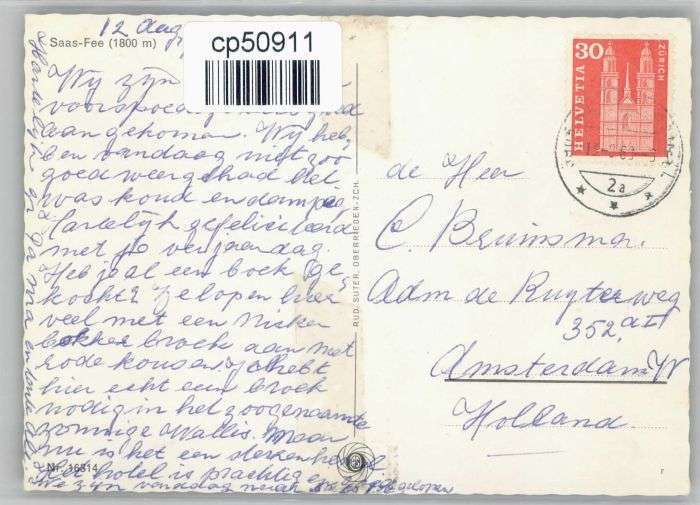 12 Aug
Saas-Fee (1800 m)
cp50911
Wij zijn
voorspoedig
aangekomen. Wij heb,
ben vandaag niet zoo
goed weer gehad het
was koud en dampig
Hartelijk gefeliciteerd
met je verjaardag.
Heb je al een boek ge,
kocht? ze lopen hier
veel met een
broek aan met
rode kousen je hebt
hier echt een broek
nodig in het zoogenaamde
zonnige Wallis. Maar
nu is het een sterken
Het hotel is prachtig
We zijn vandaag naar gelopen
Hartelijk gr. Oma en
Nr. 16314
RUD. SUTER, OBERRIEDEN-ZCH.
30
HELVETIA
ZÜRICH
2a
de Heer
C. Bruinsma.
Adm de Ruyterweg
352, a II
Amsterdam W
Holland.